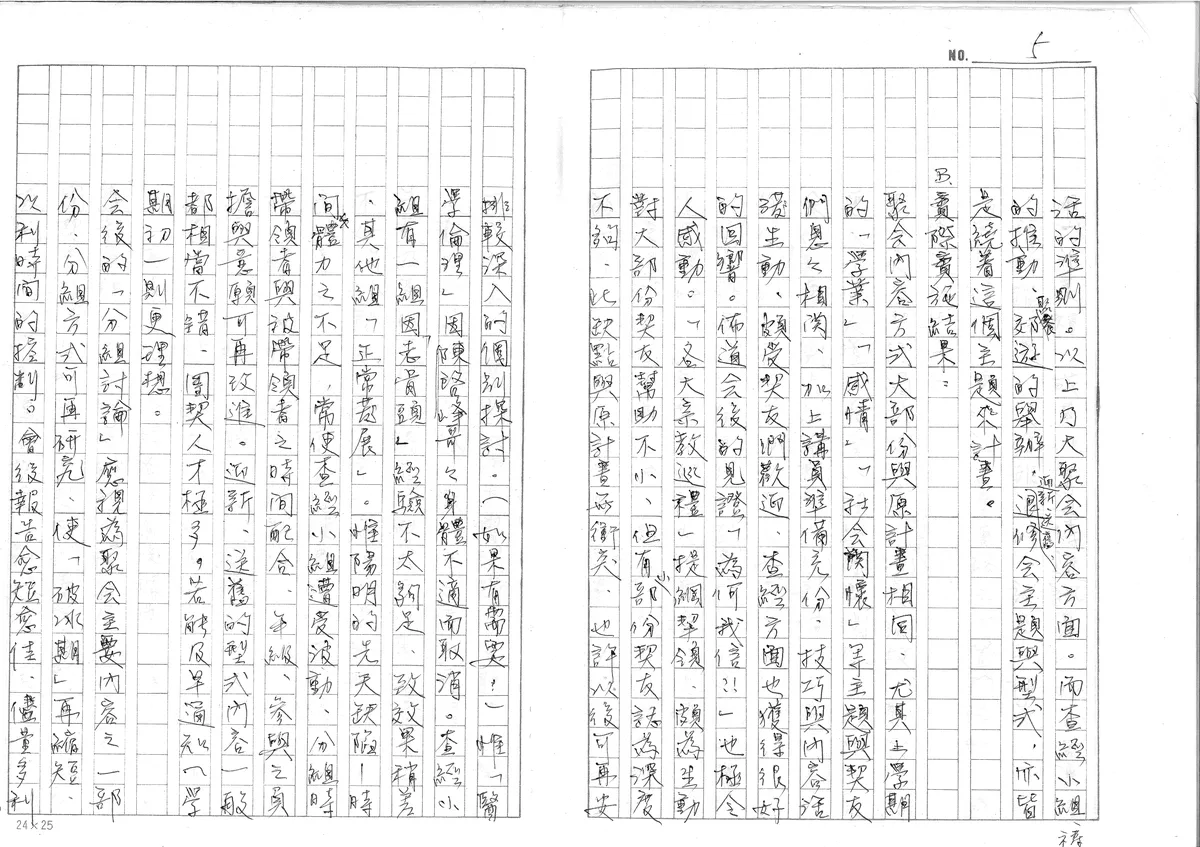 NO. 5
活的準則。以上乃大聚会內容方面。而查經小組
的推動、聚餐、郊遊的舉辦、迎新送舊、退修会主題與型式,亦皆
是繞着這個主題來計畫。
B. 實際實施結果:
聚会內容方式大部份與原計畫相同、尤其上學期
的「學業」「感情」「社会關懷」等主題與契友
們息々相関、加上講員準備充份、技巧與內容活
潑生動、頗受契友們歡迎、查經方面也獲得很好
的回響。佈道会後的見證「為何我信?!」也極令
人感動。「各大宗教巡禮」提綱挈領、頗為生動
對大部份契友幫助不小、但有小部份契友認為深度
不夠、此缺點與原計畫無衝突、也許以後可再安
排較深入的個別探討。(如果有需要!)惟「醫
學倫理」因陳路 哥々身體不適而取消。查經小
組有一組因「老骨頭」經驗不太夠足、致效果稍差
、其他組「正常發展」。惟陽明的先天缺陷—時
间、體力之不足,常使查經小組遭受波動、分組時
帶領者與被帶領者之時间配合、年級、參與之員
擔與意願可再改進。迎新、送舊的型式內容一般
都相當不錯、團契人才極多。若能及早通知(學
期初)則更理想。
会後的「分組討論」應視為聚会主要內容之一部
份、分組方式可再研究、使「破冰期」再縮短、
以利時间的控制。會後報告愈短愈佳、儘量多利
24×25